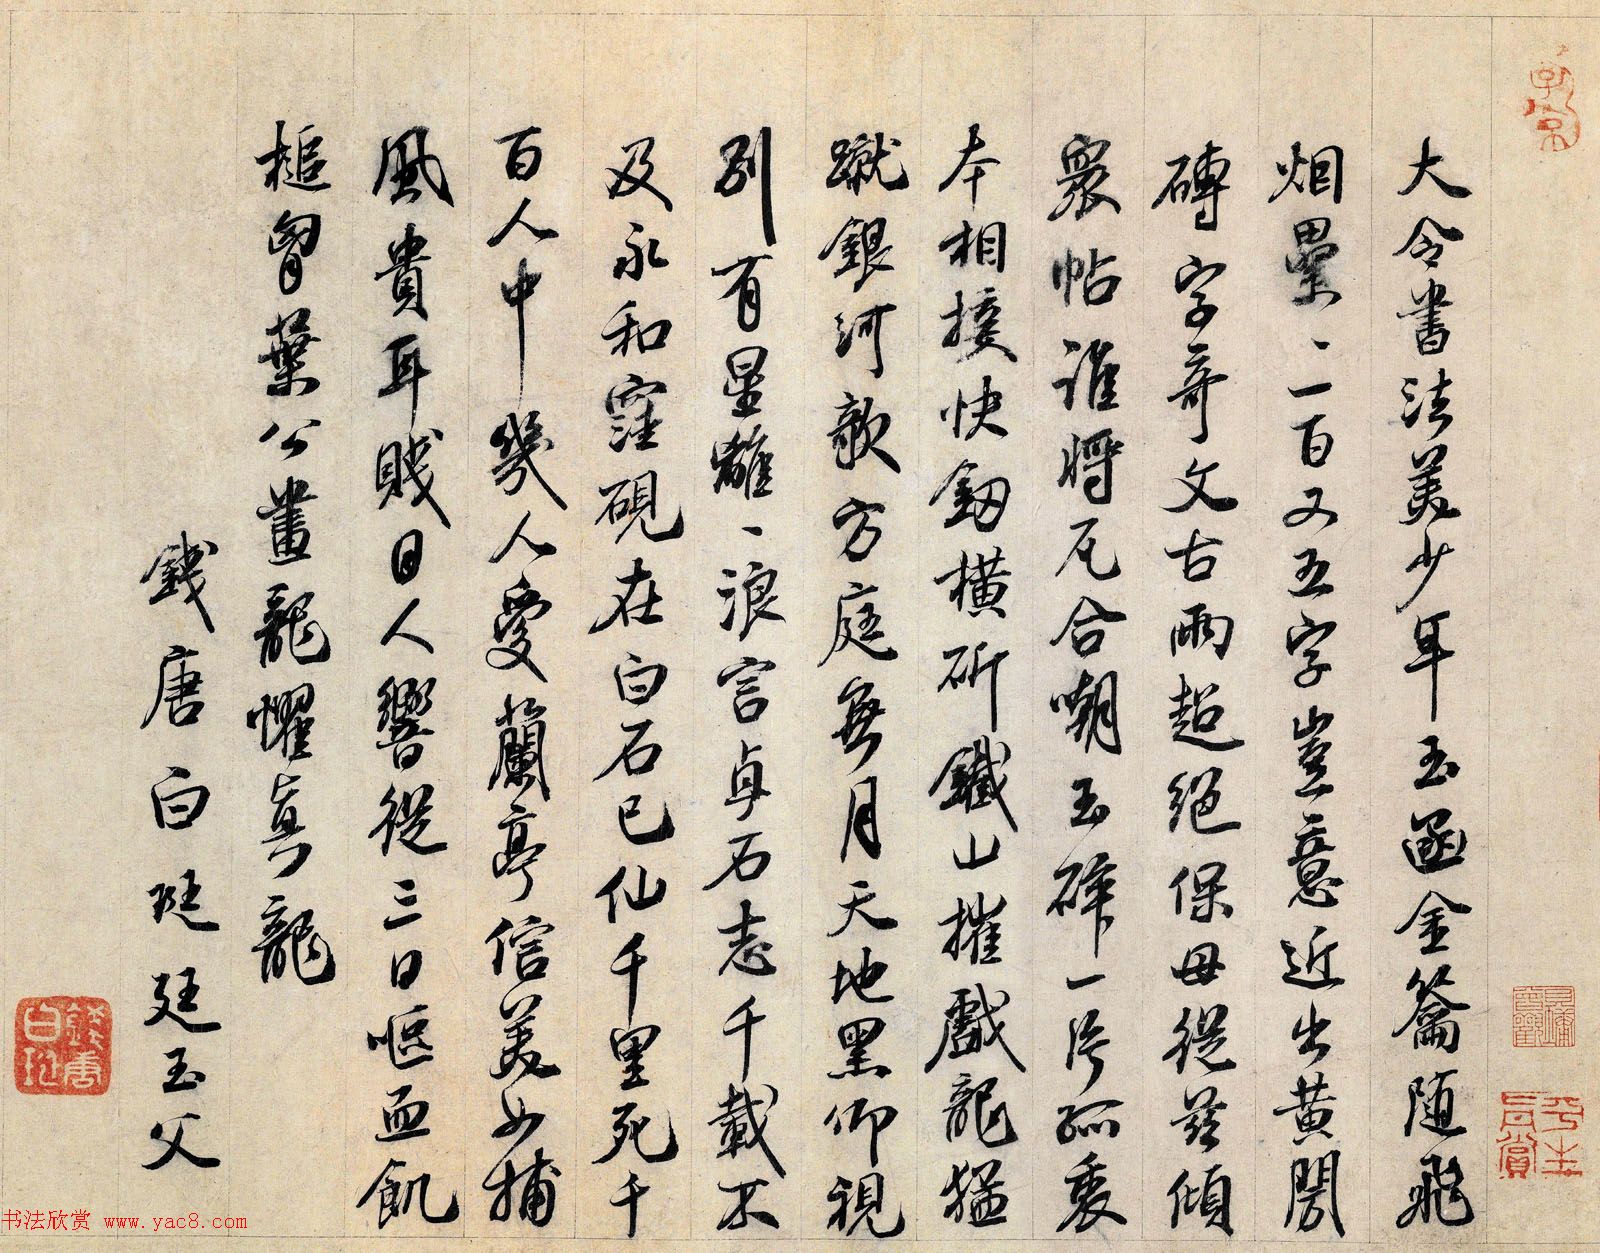 大令書法美少年玉函金籥随飛
烟壘〻二百又五字豈意近出黄閍
磚字奇文古兩超絕保母從茲傾
衆帖誰將瓦合嘲玉碎一片孤裏
本相接快劔橫斫鐵山摧戲龍猛
蹴銀河欹方庭無月天地黑仰視
別有星離〻浪言貞石志千載不
及永和窪硯在白石已仙千里死千
百人中幾人愛蘭亭信美如捕
風貴耳賤目人響從三日嘔血飢
槌胷葉公畫龍懼真龍
錢唐白珽廷玉父
錢唐白珽
書法欣赏 www.yac8.com